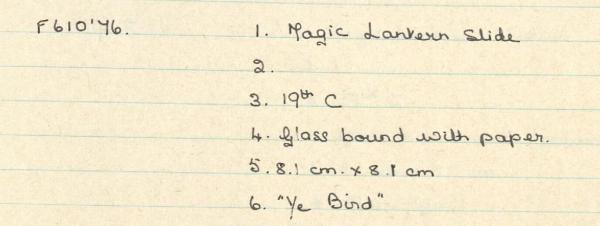 F610'76. 1. Magic Lantern Slide
2.
3. 19th C
4. Glass bound with paper.
5. 8.1 cm. x 8.1 cm
6. "Ye Bird"